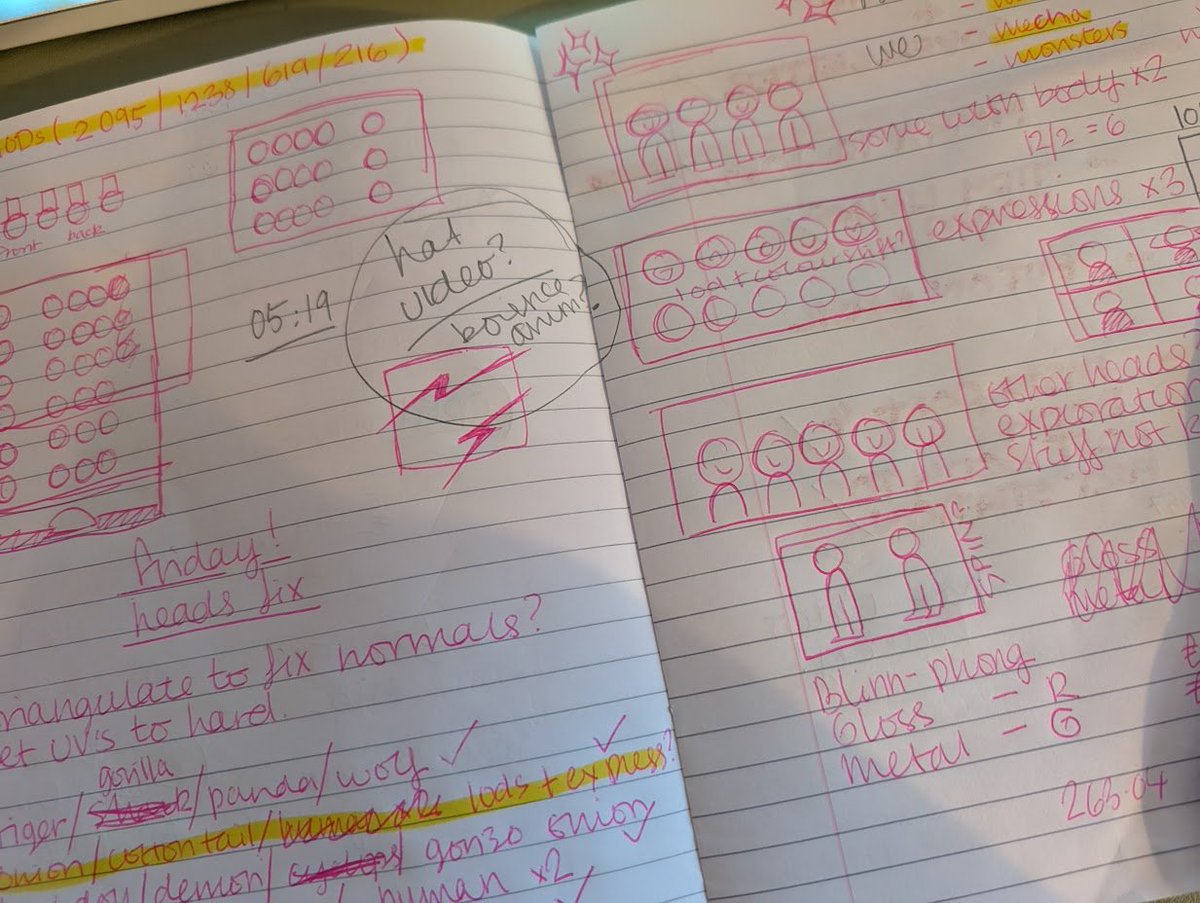 LODs (2095/1238/619/216)
front back
05:19
hat
video?
bounce
anim?
Friday!
heads fix
triangulate to fix normals?
set UV's to hard.
gorilla
tiger/ /panda/wolf ✓
onion/cottontail/ lods + express? ✓
/demon/ gonzo onion ✓
human x2 ✓
- mecha
- monsters
some with body x2
12/2 = 6
10
expressions x3
other heads
exploration
stuff not
Blinn-phong
Gloss - R
metal - G
gloss
metal
263.04